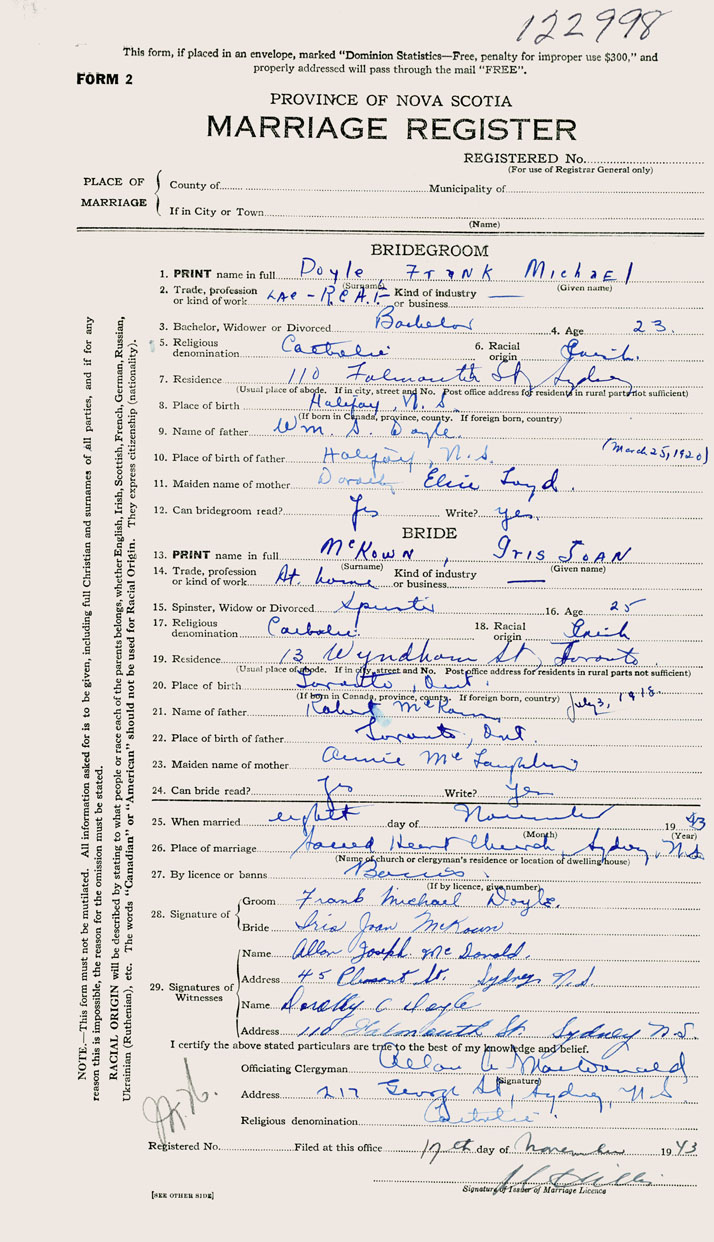 122998
This form, if placed in an envelope, marked "Dominion Statistics—Free, penalty for improper use $300," and
properly addressed will pass through the mail "FREE".
FORM 2
PROVINCE OF NOVA SCOTIA
MARRIAGE REGISTER
REGISTERED No.
(For use of Registrar General only)
PLACE OF MARRIAGE
County of
Municipality of
If in City or Town
(Name)
BRIDEGROOM
1. PRINT name in full Doyle Frank Michael
(Surname) (Given name)
2. Trade, profession or kind of work LAC - R.C.A.F. Kind of industry or business —
3. Bachelor, Widower or Divorced Bachelor 4. Age 23.
5. Religious denomination Catholic 6. Racial origin
7. Residence 110 Falmouth St, Sydney
(Usual place of abode. If in city, street and No. Post office address for residents in rural parts not sufficient)
8. Place of birth Halifax, N.S.
(If born in Canada, province, county. If foreign born, country)
9. Name of father Wm. S. Doyle.
10. Place of birth of father Halifax, N.S. (March 25, 1920)
11. Maiden name of mother Elsie Loyd.
12. Can bridegroom read? Yes Write? yes.
BRIDE
13. PRINT name in full McKown, Iris Joan
(Surname) (Given name)
14. Trade, profession or kind of work At home Kind of industry or business —
15. Spinster, Widow or Divorced Spinster 16. Age 25
17. Religious denomination Catholic. 18. Racial origin
19. Residence 13 Wyndham St, Toronto
(Usual place of abode. If in city, street and No. Post office address for residents in rural parts not sufficient)
20. Place of birth Toronto, Ont.
(If born in Canada, province, county. If foreign born, country) July 3, 1918.
21. Name of father Robert McKown
22. Place of birth of father Toronto, Ont.
23. Maiden name of mother Annie McLaughlin
24. Can bride read? Yes Write? Yes
25. When married eighth day of November 1943
(Month) (Year)
26. Place of marriage Sacred Heart Church, Sydney, N.S.
(Name of church or clergyman's residence or location of dwelling house)
27. By licence or banns Banns.
(If by licence, give number)
28. Signature of
Groom Frank Michael Doyle.
Bride Iris Joan McKown
29. Signatures of Witnesses
Name Allan Joseph McDonald.
Address 45 Pleasant St. Sydney N.S.
Name Dorothy C Doyle
Address 110 Falmouth St. Sydney N.S.
I certify the above stated particulars are true to the best of my knowledge and belief.
Officiating Clergyman Allan A MacDonald
(Signature)
Address 217 George St, Sydney, N.S.
Religious denomination Catholic.
Registered No. Filed at this office 17th day of November 1943
Signature of Issuer of Marriage Licence
[SEE OTHER SIDE]
NOTE.—This form must not be mutilated. All information asked for is to be given, including full Christian and surnames of all parties, and if for any
reason this is impossible, the reason for the omission must be stated.
RACIAL ORIGIN will be described by stating to what people or race each of the parents belongs, whether English, Irish, Scottish, French, German, Russian,
Ukrainian (Ruthenian), etc. The words "Canadian" or "American" should not be used for Racial Origin. They express citizenship (nationality).